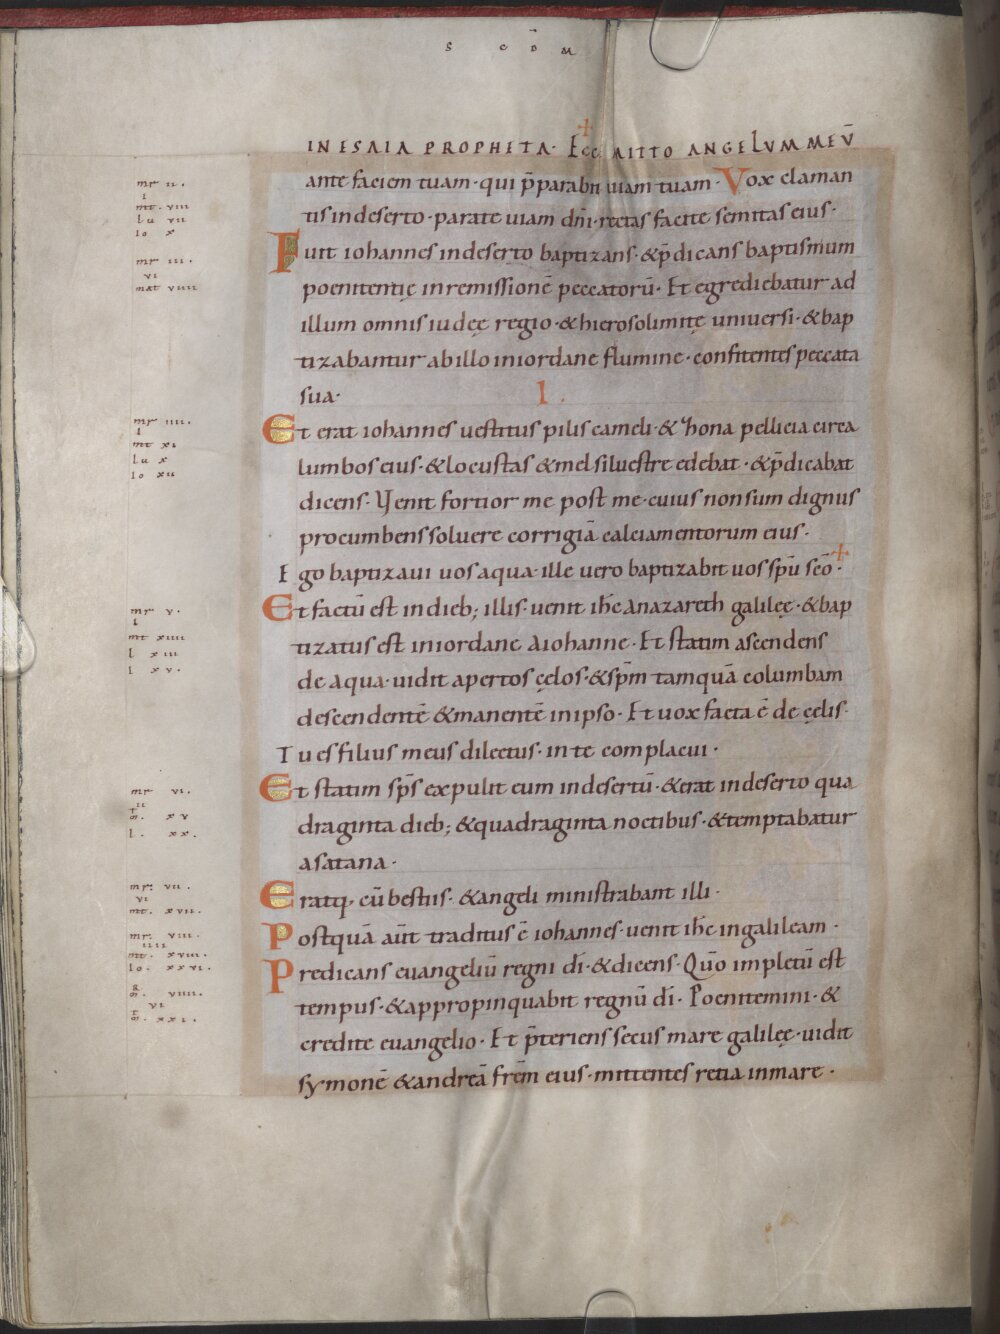 S C̄D̄M
IN ESAIA PROPHETA· Ecce MITTO ANGELUM MEŪ
ante faciem tuam· qui p̄parabit uiam tuam· Vox claman
tis in deserto· parate uiam dn̄i· rectas facite semitas eius·
Fuit iohannes in deserto baptizans· & p̄dicans baptismum
poenitentię in remissionē peccatorū· Et egrediebatur ad
illum omnis iudęę regio· & hierosolimitę universi· & bap
tizabantur ab illo in iordane flumine· confitentes peccata
sua·
1.
Et erat iohannes uestitus pilis cameli· & zona pellicia circa
lumbos eius· & locustas & mel siluestre edebat· & p̄dicabat
dicens· Venit fortior me post me· cuius non sum dignus
procumbens soluere corrigiā calciamentorum eius·
Ego baptizaui uos aqua· ille uero baptizabit uos sp̄u sc̄o·
Et factū est in dieb; illis· uenit ih̄c a nazareth galilęę· & bap
tizatus est in iordane a iohanne· Et statim ascendens
de aqua· uidit apertos cęlos· & sp̄m tamquā columbam
descendentē & manentē in ipso· Et uox facta ē de cęlis·
Tu es filius meus dilectus· in te complacui·
Et statim sp̄s expulit eum in desertū· & erat in deserto qua
draginta dieb; & quadraginta noctibus· & temptabatur
a satana·
Eratq, cū bestiis· & angeli ministrabant illi·
Postquā aūt traditus ē iohannes· uenit ih̄c in galileam·
Predicans euangeliū regni dī· & dicens· Qūo impletū est
tempus· & appropinquabit regnū dī· Poenitemini· &
credite euangelio· Et p̄teriens secus mare galilęę· uidit
symonē & andreā fr̄em eius· mittentes retia in mare·
mr ii.
i
mt. viii
lu vii
io x
mr iii.
vi
mat viiii
mr iiii.
i
mt xi
lu x
io xii
mr v.
i
mt xiiii
l xiii
l xv.
mr vi.
ii
m. xv
l. xx.
mr: vii.
vi
mt. xvii.
mr. viii.
iiii
mt. xviii.
io. xxvi.
viiii.
vi
m. xxi.